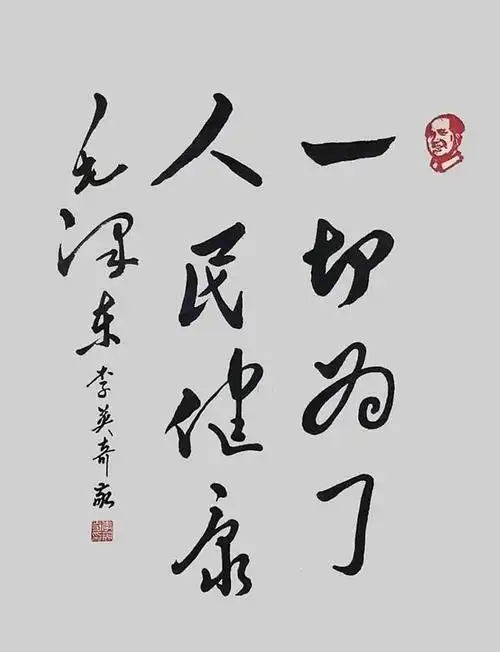 一切为了
人民健康
毛泽东 李英奇敬